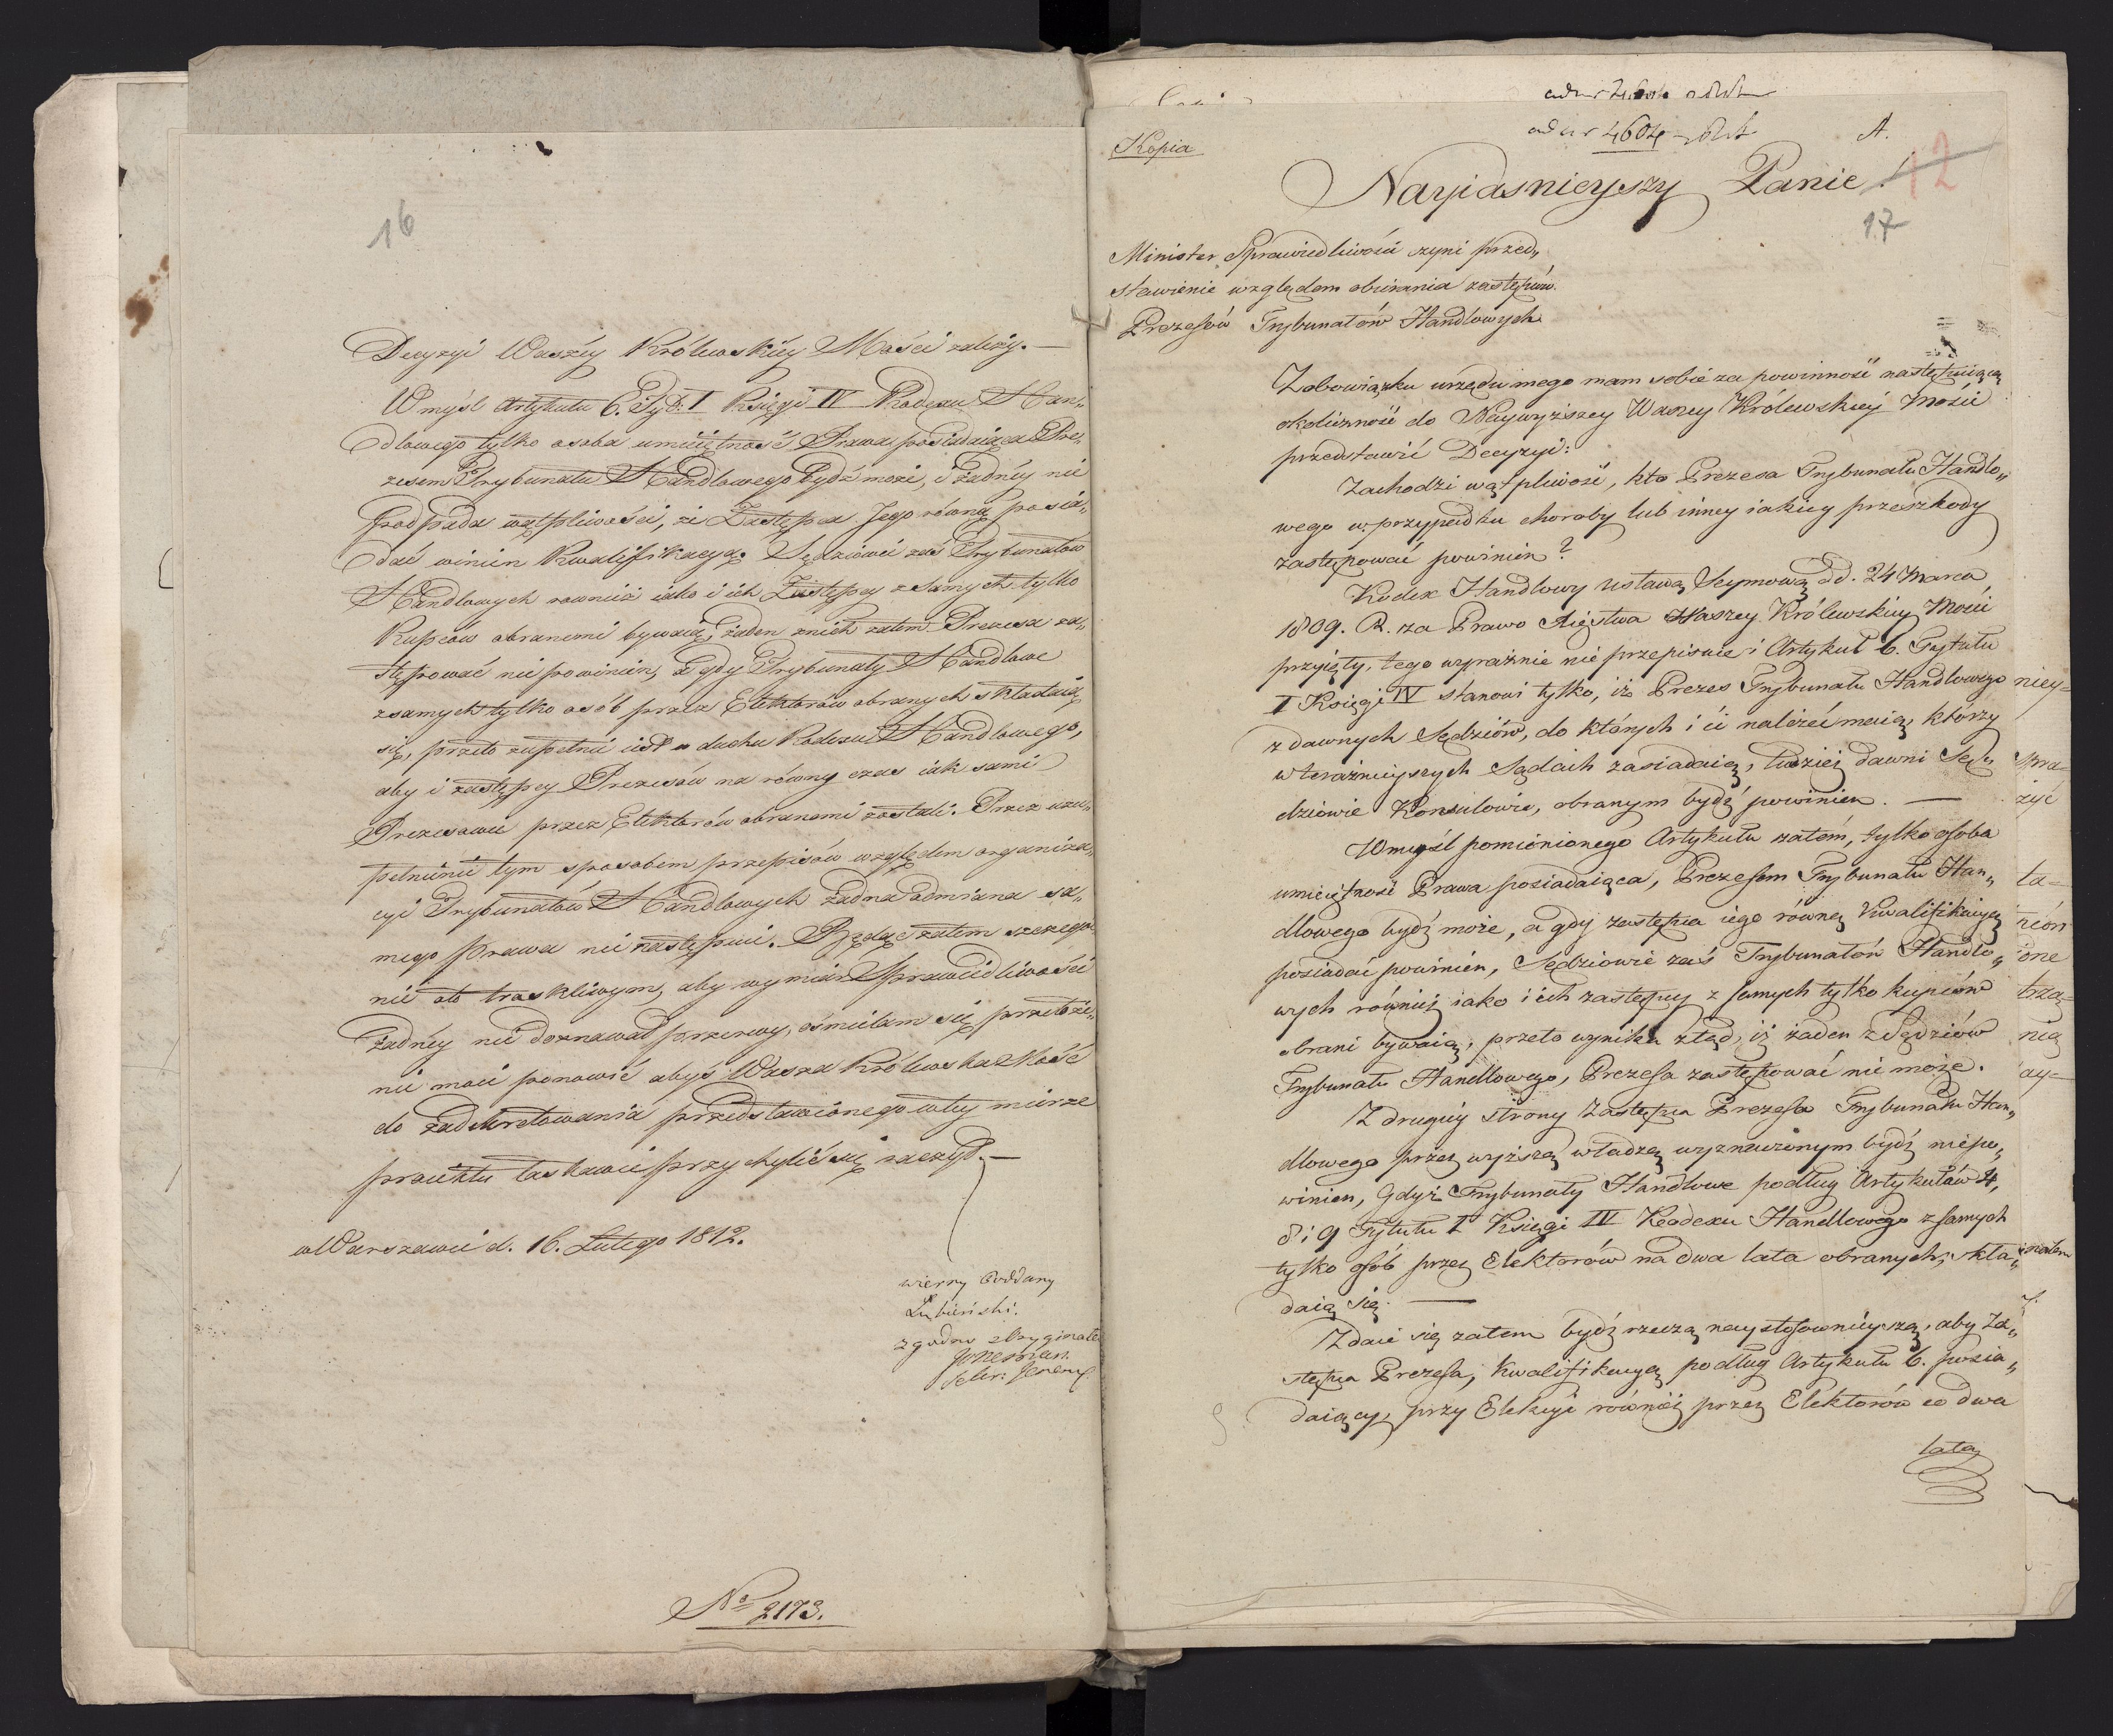 16
Decyzyi Waszéy Królewskiéy Mości zależy. —
W myśl Artykułu 6. Tyt: I Księgi IV Kodexu Han„
dlowego tylko osoba umieiętność Prawa posiadaiąca Pre„
zesem Trybunału Handlowego bydź może, i żadnéy nie
podpada wątpliwości, że Zastępca Jego równą posia„
dać winien Kwalifikacyą. Sędziowie zaś Trybunałów
Handlowych również iako i ich Zastępcy z samych tylko
Kupców obranemi bywaią, żaden z nich zatem Prezesa za„
stępować nie powinien, a gdy Trybunały Handlowe
z samych tylko osób przez Elektorów obranych składaią
się, przeto zupełnie iest w duchu Kodexu Handlowego,
aby i zastępcy Prezesów na równy czas iak sami
Prezesowie przez Elektorów obranemi zostali. Przez uzu„
pełnienie tym sposobem przepisów względem organiza„
cyi Trybunałów Handlowych żadna odmiana sa„
mego prawa nie nastąpi. Będąc zatem szczegól„
nie o to troskliwym, aby wymiar Sprawiedliwości
żadnéy nie doznawał przerwy, ośmielam się przełoże„
nie moie ponowić abyś Wasza Królewska Mość
do zadekretowania przedstawionego w téy mierze
proiektu łaskawie przychylić się raczył. —
w Warszawie d. 16. Lutego 1812.
wierny Poddany
Łubieński.
zgodno z Oryginałem
Sekr: Jener:
No 2173.
ad nr 4604
Kopia
A.
12
Nayiasnieyszy Panie!
17
Minister Sprawiedliwości czyni przed„
stawienie względem obierania zastępców
Prezesów Trybunałów Handlowych
Z obowiązku urzędu mego mam sobie za powinność następuiącą
okoliczność do Naywyższey Waszey Królewskiey Mości
przedstawić Decyzyi:
Zachodzi wątpliwość, kto Prezesa Trybunału Handlo„
wego w przypadku choroby lub inney iakiey przeszkody
zastępować powinien?
Kodex Handlowy ustawą Seymową dd. 24 Marca
1809. R. za Prawo Xięstwa Waszey Królewskiey Mości
przyięty, tego wyraźnie nie przepisuie i Artykuł 6. Tytułu
I Księgi IV stanowi tylko, iż Prezes Trybunału Handlowego
z dawnych Sędziów, do których i ci należeć maią, którzy
w teraźnieyszych Sądach zasiadaią, tudzież dawni Sę„
dziowie Konsulowie, obranym bydź powinien. —
W myśl pomienionego Artykułu zatem, tylko osoba
umieiętność Prawa posiadaiąca, Prezesem Trybunału Han„
dlowego bydź może, a gdy zastępca iego równą Kwalifikacyą
posiadać powinien, Sędziowie zaś Trybunałów Handlo„
wych również iako i ich zastępcy z samych tylko kupców
obrani bywaią, przeto wynika ztąd, iż żaden z Sędziów
Trybunału Handlowego, Prezesa zastępować nie może.
Z drugiey strony Zastępca Prezesa Trybunału Han„
dlowego przez wyższą władzą wyznaczonym bydź niepo„
winien, gdyż Trybunały Handlowe podług Artykułów 4,
8 i 9 Tytułu I Księgi IV Kodexu Handlowego z samych
tylko osób przez Elektorów na dwa lata obranych, skła„
daią się. —
Zdaie się zatem bydź rzeczą naystosownieyszą, aby Za„
stępca Prezesa, Kwalifikacyą podług Artykułu 6. posia„
daiący, przy Elekcyi również przez Elektorów co dwa
lata